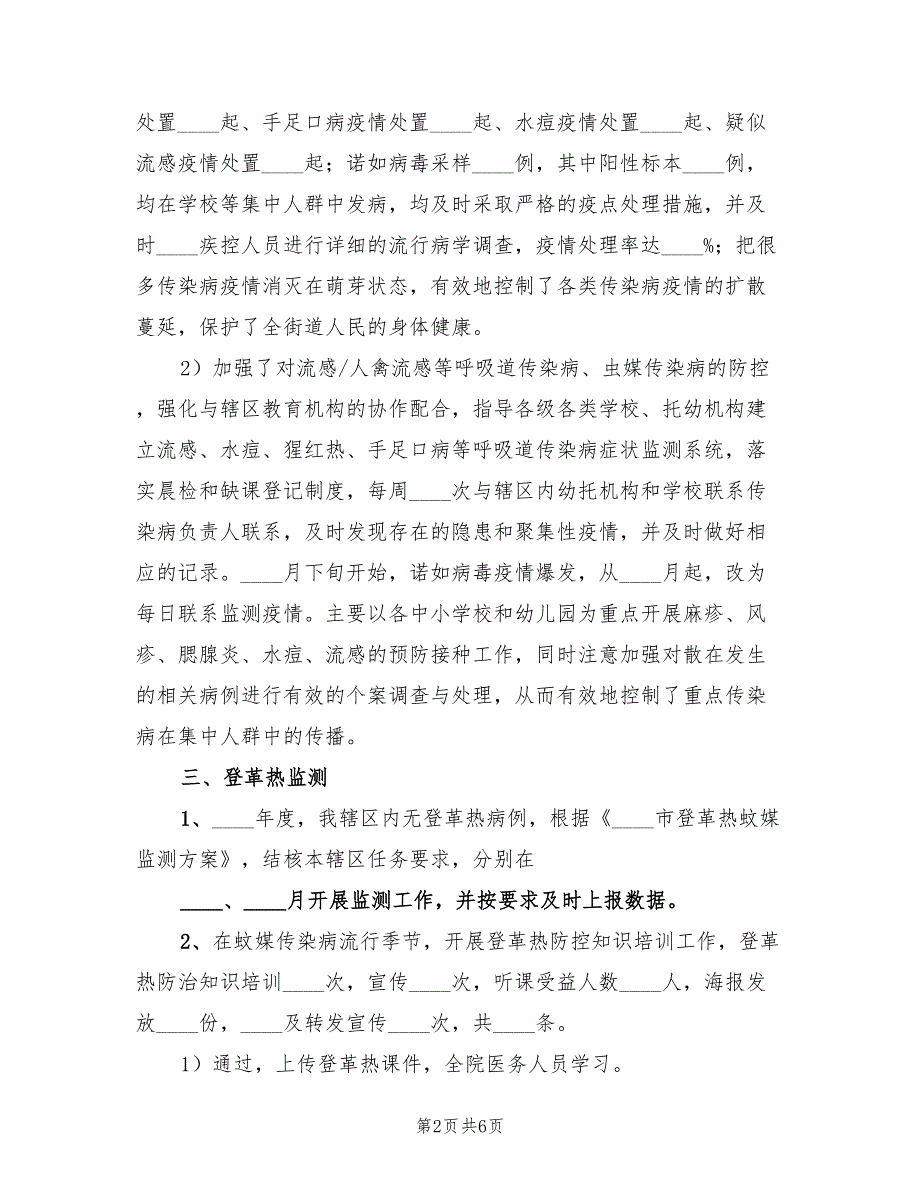 处置____起、手足口病疫情处置____起、水痘疫情处置____起、疑似
流感疫情处置____起；诺如病毒采样____例，其中阳性标本____例，
均在学校等集中人群中发病，均及时采取严格的疫点处理措施，并及
时____疾控人员进行详细的流行病学调查，疫情处理率达____%；把很
多传染病疫情消灭在萌芽状态，有效地控制了各类传染病疫情的扩散
蔓延，保护了全街道人民的身体健康。
2）加强了对流感/人禽流感等呼吸道传染病、虫媒传染病的防控
，强化与辖区教育机构的协作配合，指导各级各类学校、托幼机构建
立流感、水痘、猩红热、手足口病等呼吸道传染病症状监测系统，落
实晨检和缺课登记制度，每周____次与辖区内幼托机构和学校联系传
染病负责人联系，及时发现存在的隐患和聚集性疫情，并及时做好相
应的记录。____月下旬开始，诺如病毒疫情爆发，从____月起，改为
每日联系监测疫情。主要以各中小学校和幼儿园为重点开展麻疹、风
疹、腮腺炎、水痘、流感的预防接种工作，同时注意加强对散在发生
的相关病例进行有效的个案调查与处理，从而有效地控制了重点传染
病在集中人群中的传播。
三、登革热监测
1、____年度，我辖区内无登革热病例，根据《____市登革热蚊媒
监测方案》，结核本辖区任务要求，分别在
____、____月开展监测工作，并按要求及时上报数据。
2、在蚊媒传染病流行季节，开展登革热防控知识培训工作，登革
热防治知识培训____次，宣传____次，听课受益人数____人，海报发
放____份，____及转发宣传____次，共____条。
1）通过，上传登革热课件，全院医务人员学习。
第2页共6页